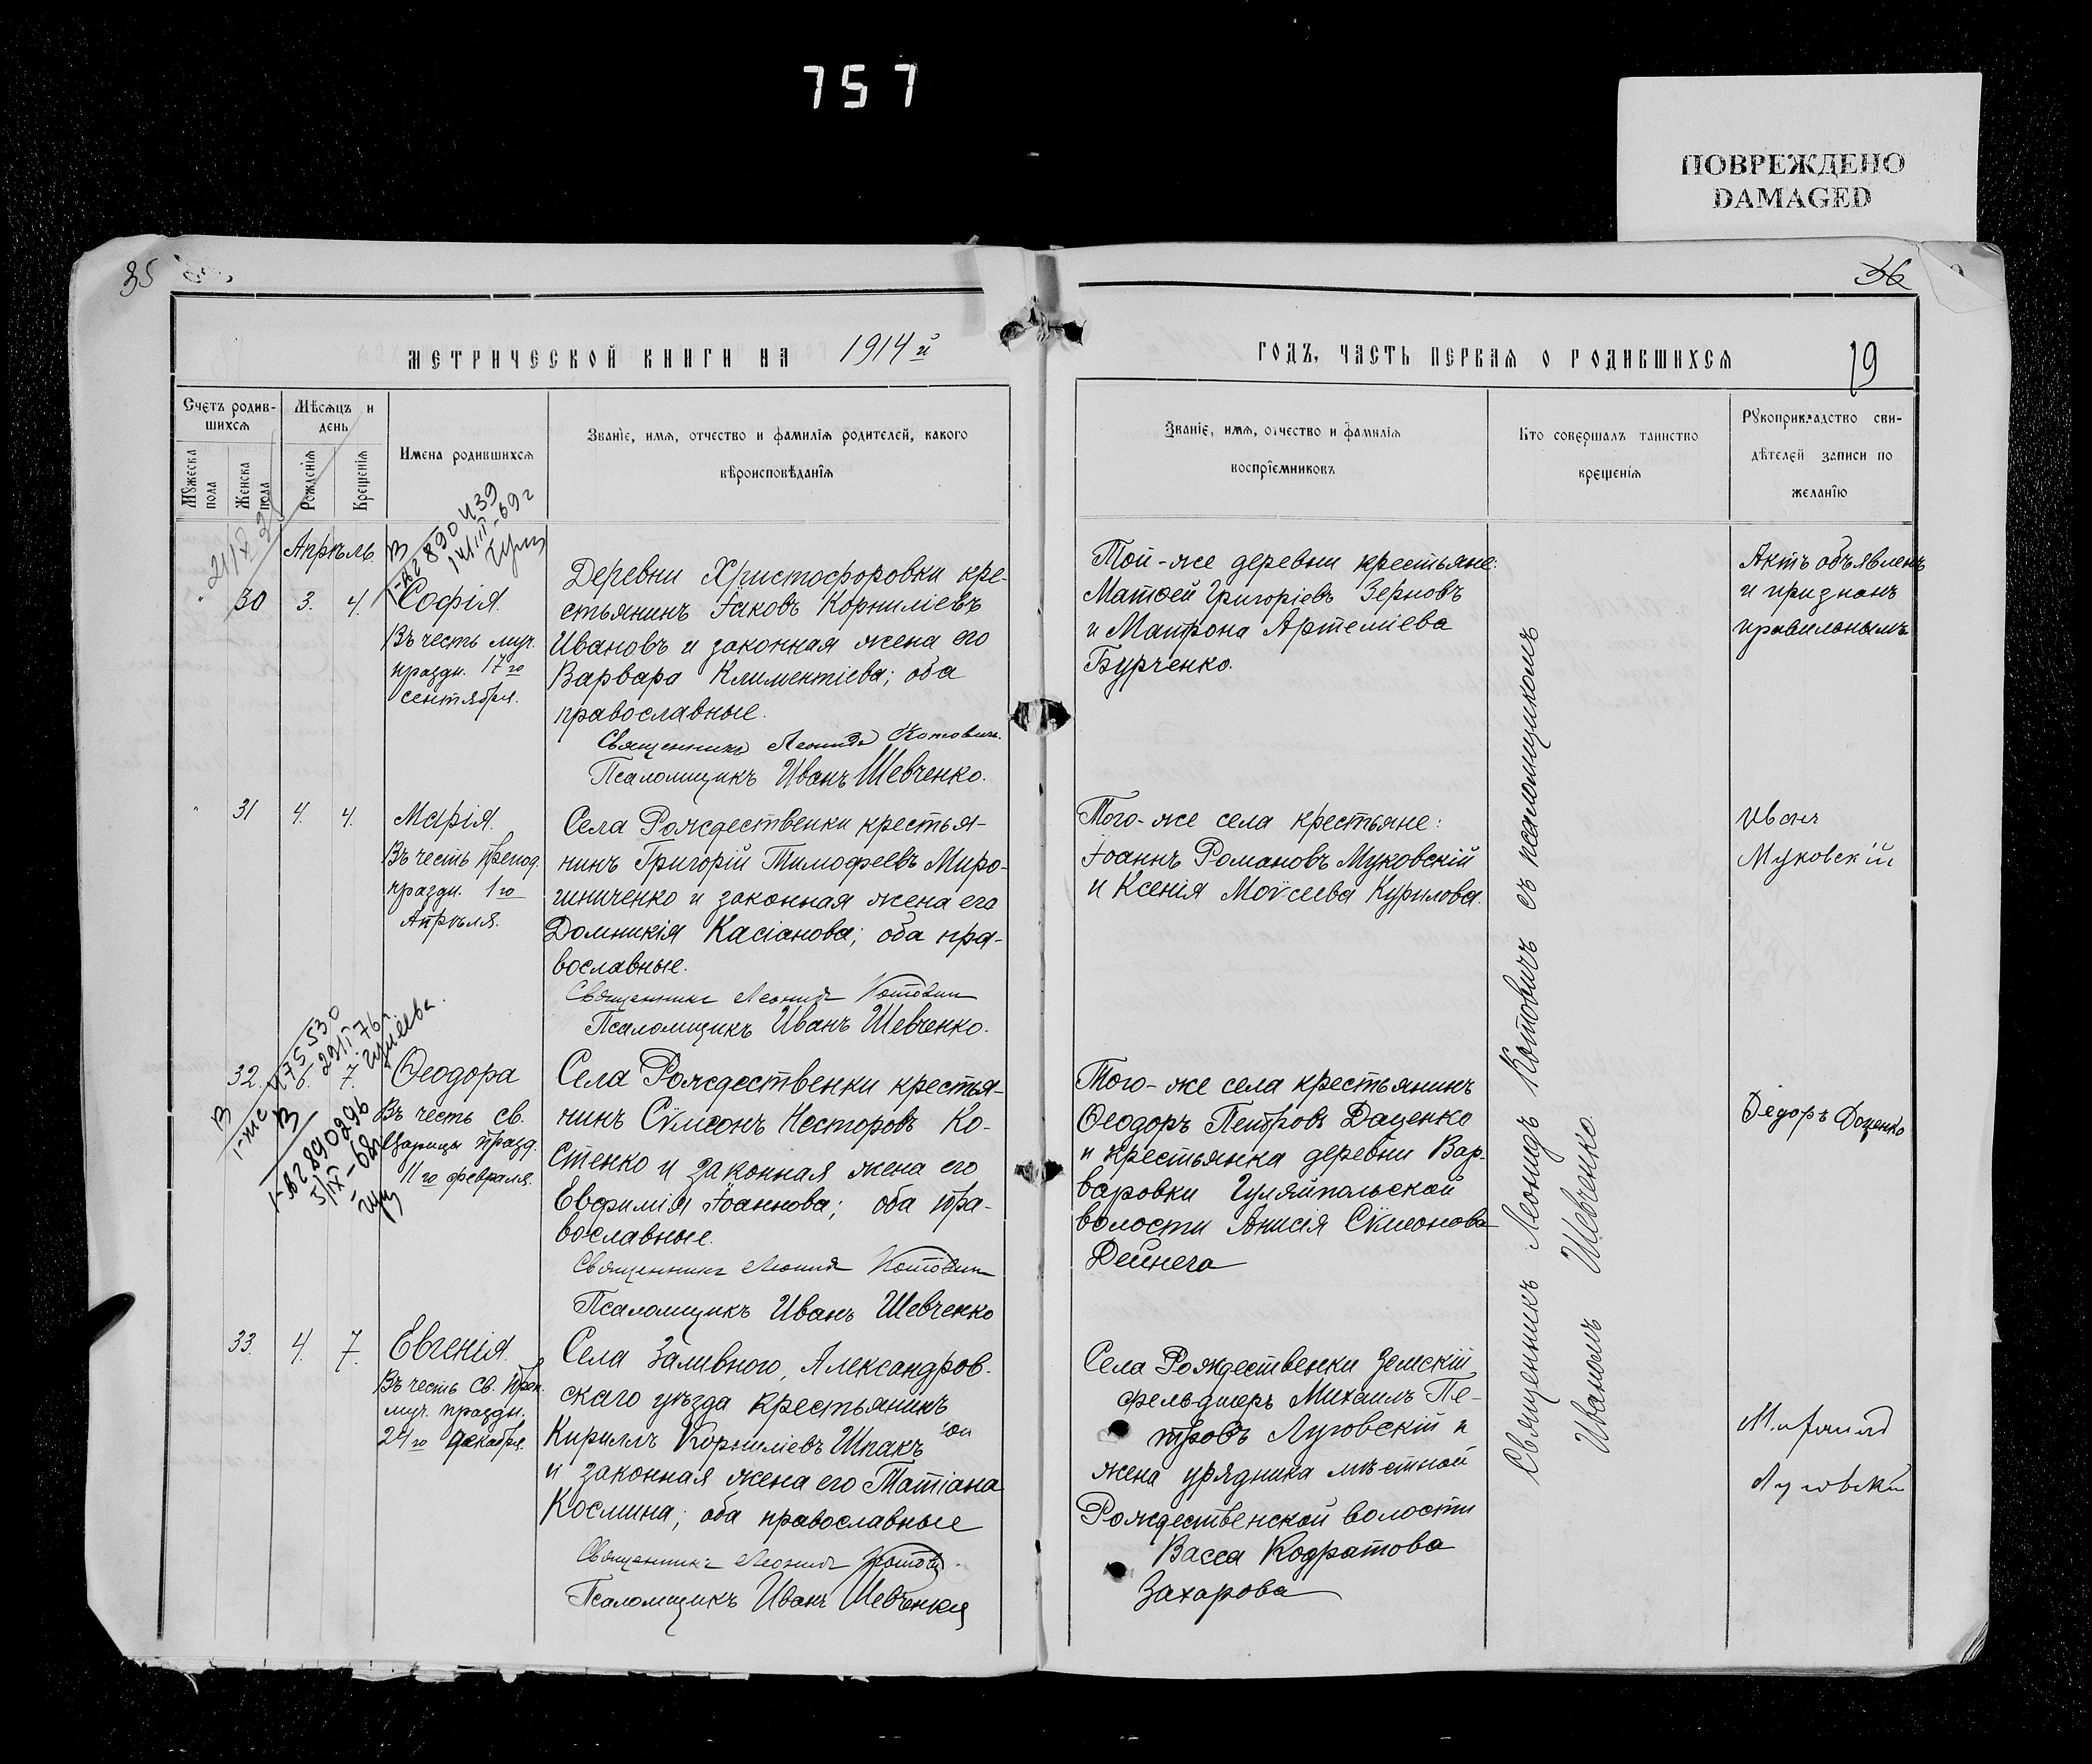 757
ПОВРЕЖДЕНО
DAMAGED
35
36
МЕТРИЧЕСКОЙ КНИГИ НА 1914 й
Счетъ родив-
шихся
Мѣсяцъ и
день
Мужеска
пола
Женска
пола
Рожденія
Крещенія
Имена родившихся
Званіе, имя, отчество и фамилія родителей, какого
вѣроисповѣданія
Апрѣль
30 3. 4. Софія.
Въ честь муч.
праздн. 17го
сентября.
Деревни Христофоровки кре-
стьянинъ Іаковъ Корниліевъ
Ивановъ и законная жена его
Варвара Климентіева; оба
православные.
Священникъ Леонидъ Котовичъ.
Псаломщикъ Иванъ Шевченко.
31 4. 4. Марія.
Въ честь препод.
праздн. 1го
Апрѣля.
Села Рождественки крестья-
нинъ Григорій Тимофеевъ Миро-
шниченко и законная жена его
Домникія Касіанова; оба пра-
вославные.
Священникъ Леонидъ Котовичъ
Псаломщикъ Иванъ Шевченко.
32. 6. 7. Ѳеодора
Въ честь св.
Царицы празд.
11го февраля.
Села Рождественки крестья-
нинъ Сѵмеонъ Несторовъ Ко-
стенко и законная жена его
Евфимія Іоаннова; оба пра-
вославные.
Священникъ Леонидъ Котовичъ
Псаломщикъ Иванъ Шевченко
33. 4. 7. Евгенія.
Въ честь св. преп.
муч. праздн.
24го декабря.
Села Заливного, Александров-
скаго уѣзда крестьянинъ
Кириллъ Корниліевъ Шпакъ
и законная жена его Татіана
Космина; оба православные
Священникъ Леонидъ Котович.
Псаломщикъ Иванъ Шевченко
В
I-АГ 890439
14/III-69г
В
I-ЖС 475530
29/I-76г.
В
I-АГ 890296
3/IX-68г
ГОДЪ, ЧАСТЬ ПЕРВАЯ О РОДИВШИХСЯ
19
Званіе, имя, отчество и фамилія
воспріемниковъ
Кто совершалъ таинство
крещенія
Рукоприкладство сви-
дѣтелей записи по
желанію
Той-же деревни крестьяне:
Матѳей Григоріевъ Зерновъ
и Матрона Артеміева
Бурченко.
Актъ объявленъ
и признанъ
правильнымъ
Того-же села крестьяне:
Іоаннъ Романовъ Муковскій
и Ксенія Моѵсеева Курилова.
Иванъ
Муковскій
Того-же села крестьянинъ
Ѳеодоръ Петровъ Даценко
и крестьянка деревни Вар-
варовки Гуляйпольской
волости Анисія Сѵмеонова
Дейнега
Федоръ Доценко
Села Рождественки Земскій
фельдшеръ Михаилъ Пе-
тровъ Луговскій и
жена урядника мѣстной
Рождественской волости
Васса Кодратова
Захарова
Михаилъ
Луговскій
Священникъ Леонидъ Котовичъ съ псаломщикомъ
Иваномъ Шевченко.